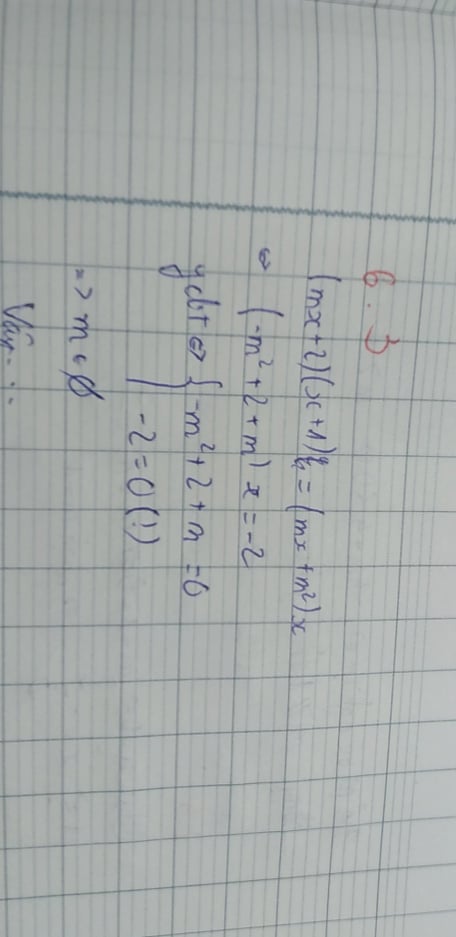 6.3
(mx+2)(x+1) = (mx+m²)x
⇔ (-m²+2+m)x = -2
ycbt ⇔ { -m²+2+m = 0
-2 = 0 (!)
=> m ∈ ∅
Vậy...